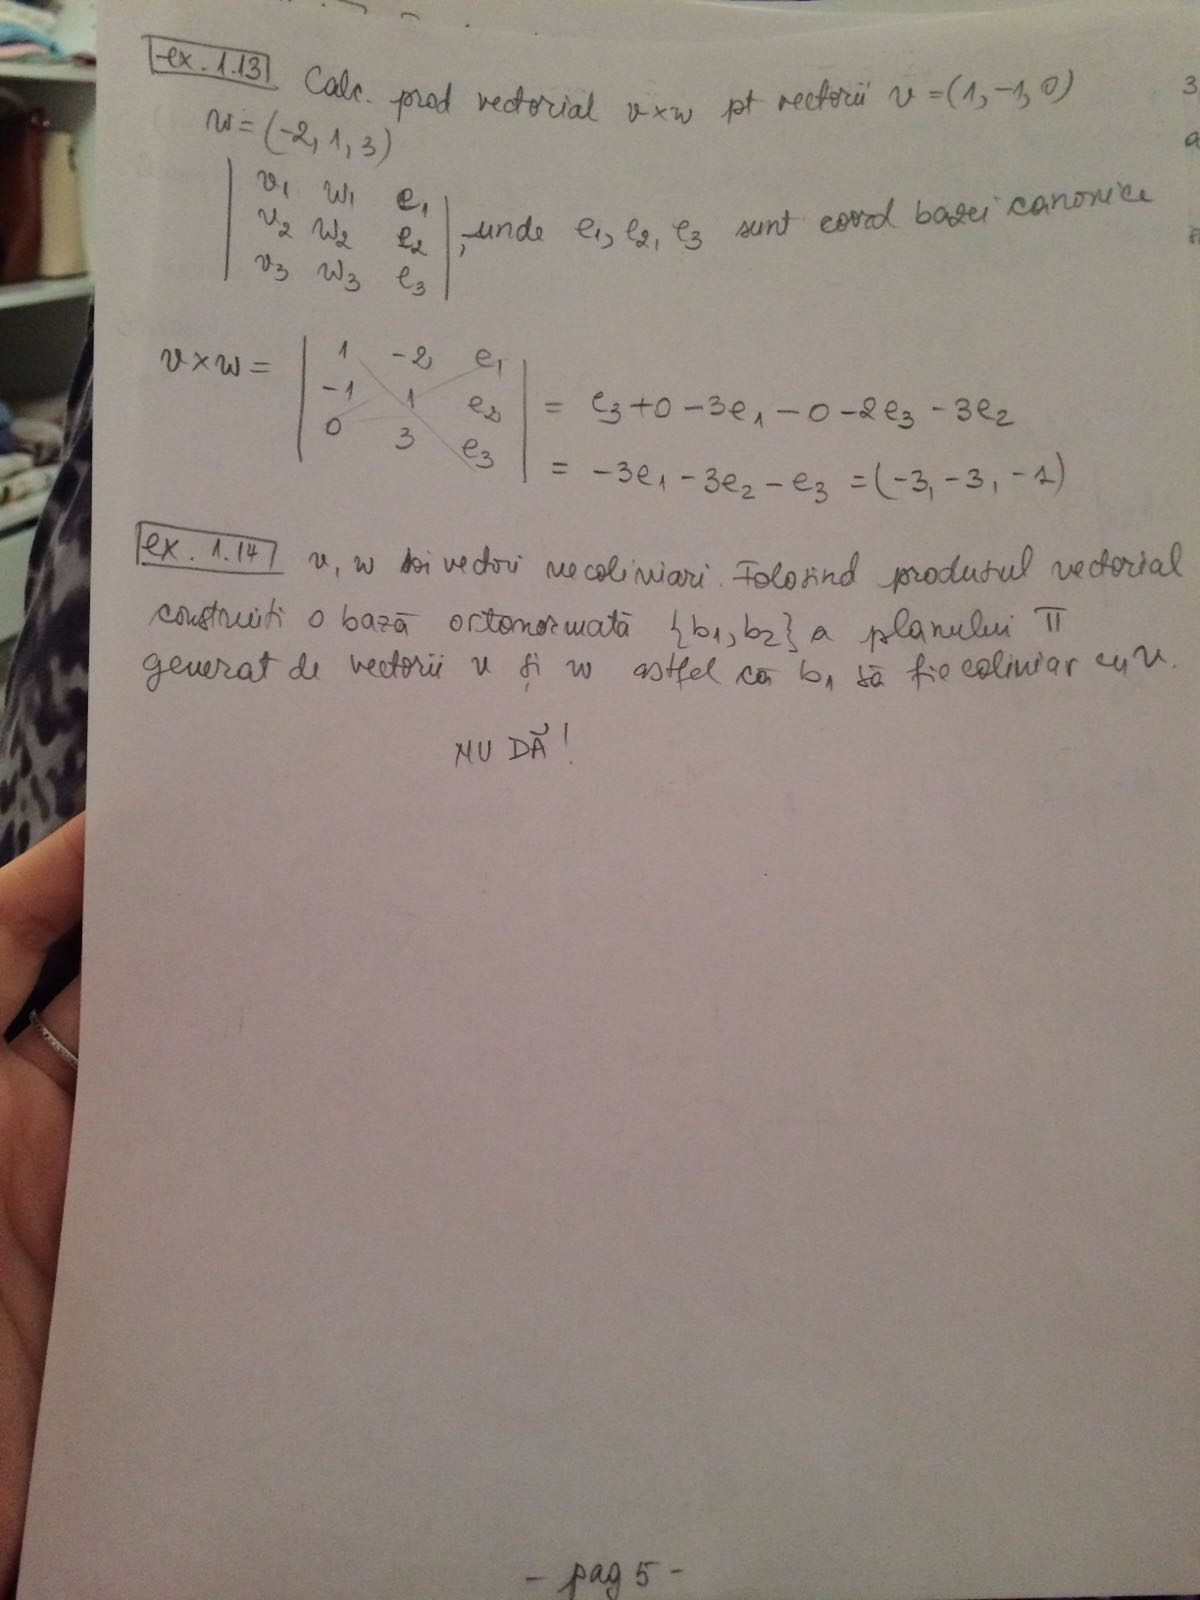 ex. 1.13 Calc. prod vectorial v×w pt vectorii v=(1,-1,0)
w=(-2,1,3)
| v1 w1 e1 |
| v2 w2 e2 | , unde e1, e2, e3 sunt coord bazei canonice
| v3 w3 e3 |
v×w = | 1 -2 e1 |
| -1 1 e2 | = e3+0-3e1-0-2e3-3e2
| 0 3 e3 | = -3e1-3e2-e3 =(-3,-3,-1)
ex. 1.14 v, w doi vectori necoliniari. Folosind produsul vectorial
construiți o bază ortonormată {b1,b2} a planului π
generat de vectorii v și w astfel că b1 să fie coliniar cu v.
NU DĂ!
- pag 5 -
3
a